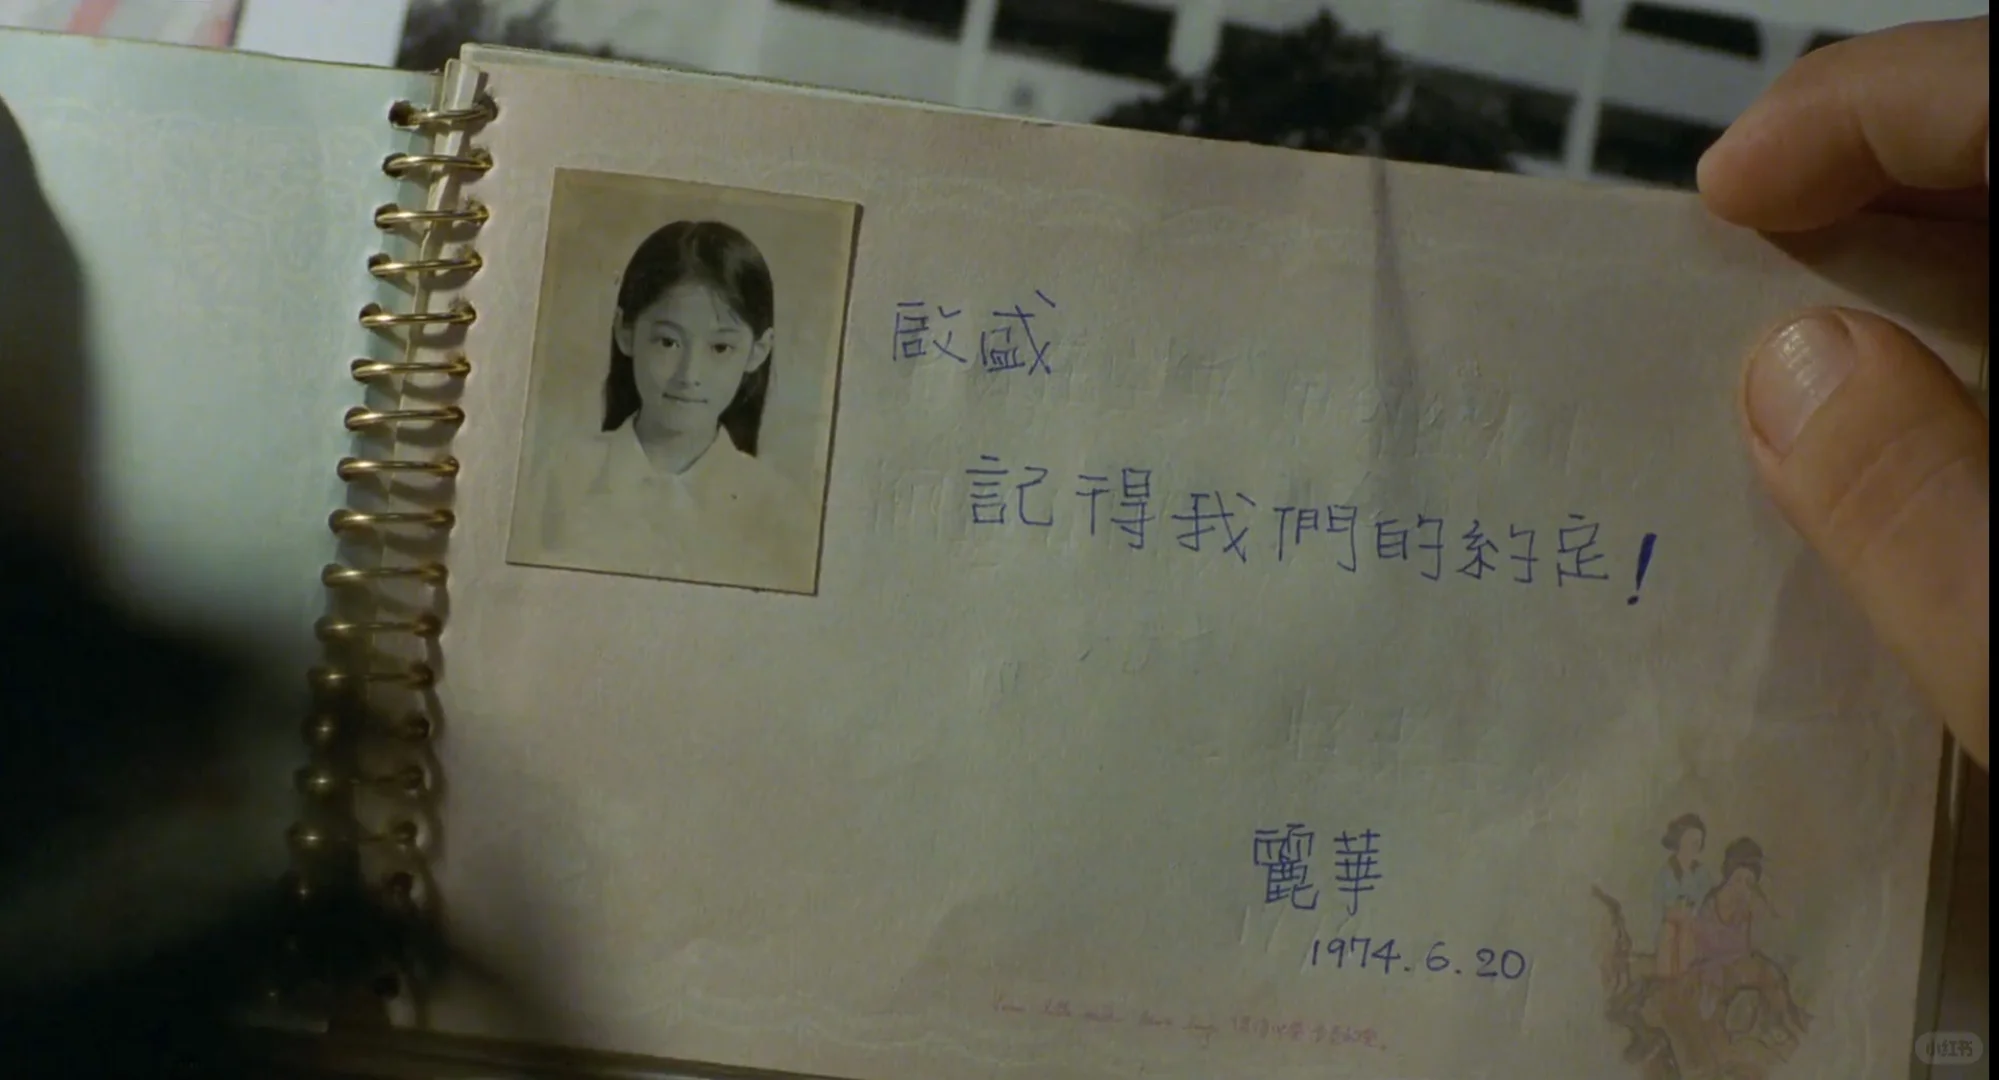 啟盛
記得我們的約定!
麗華
1974.6.20
小红书